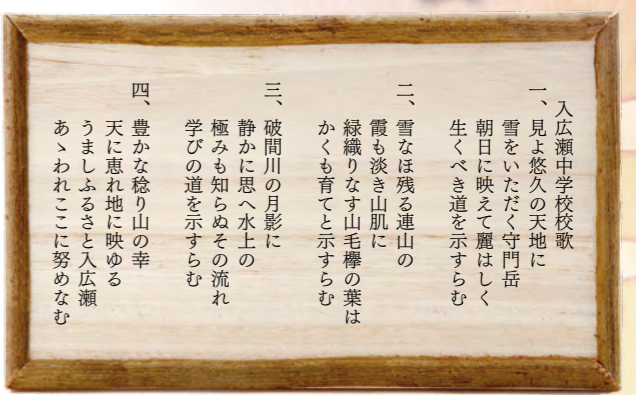 入広瀬中学校校歌
一、見よ悠久の天地に
雪をいただく守門岳
朝日に映えて麗はしく
生くべき道を示すらむ
二、雪なほ残る連山の
霞も淡き山肌に
緑織りなす山毛欅の葉は
かくも育てと示すらむ
三、破間川の月影に
静かに思へ水上の
極みも知らぬその流れ
学びの道を示すらむ
四、豊かな稔り山の幸
天に恵れ地に映ゆる
うましふるさと入広瀬
あゝわれここに努めなむ